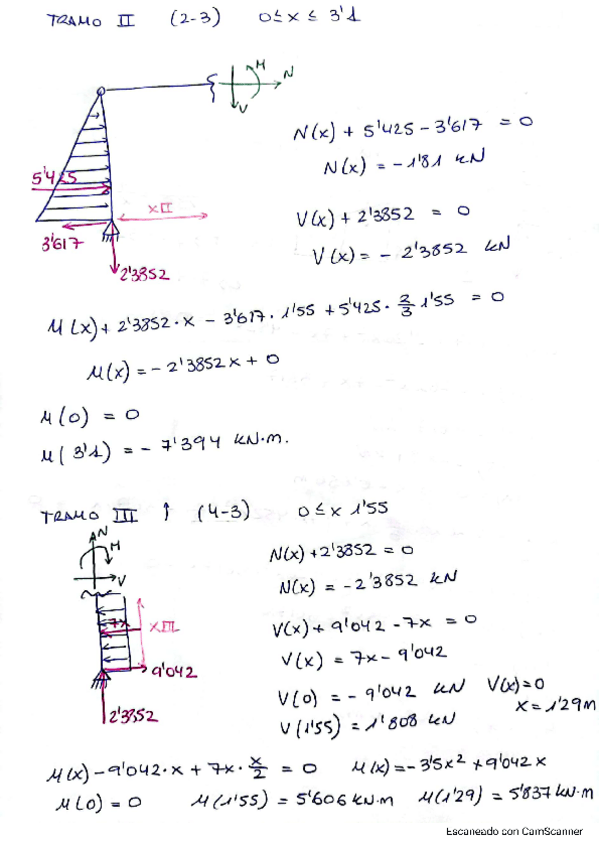 TRAMO II (2-3) 0 ≤ x ≤ 3'1
M
N
V
N(x) + 5'425 - 3'617 = 0
N(x) = -1'81 kN
5'425
x II
V(x) + 2'3852 = 0
3'617
V(x) = - 2'3852 kN
2'3852
M(x) + 2'3852·x - 3'617·1'55 + 5'425·2/3 1'55 = 0
M(x) = -2'3852x + 0
M(0) = 0
M(3'1) = -7'394 kN·m.
TRAMO III ↑ (4-3) 0 ≤ x 1'55
N
M
V
N(x) + 2'3852 = 0
N(x) = -2'3852 kN
7x
x III
V(x) + 9'042 - 7x = 0
V(x) = 7x - 9'042
9'042
V(0) = -9'042 kN V(x)=0
x = 1'29m
2'3852
V(1'55) = 1'808 kN
M(x) - 9'042·x + 7x·x/2 = 0 M(x) = -3'5x² + 9'042x
M(0) = 0 M(1'55) = 5'606 kN·m M(1'29) = 5'837 kN·m
Escaneado con CamScanner